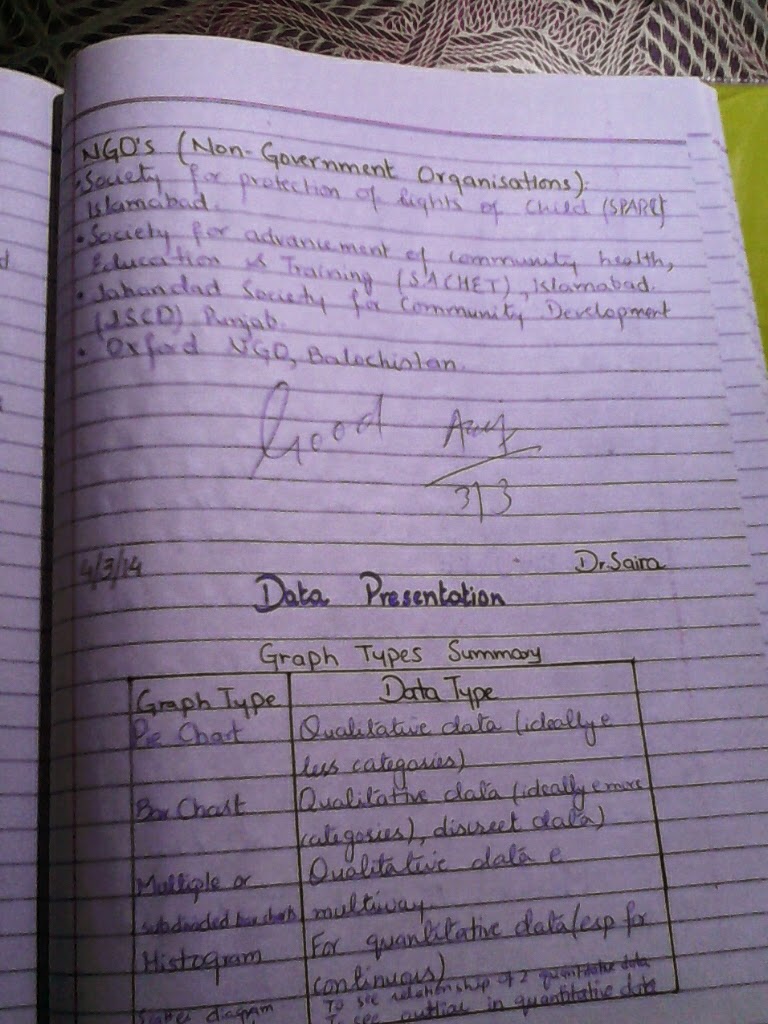 NGO's (Non-Government Organisations):
• Society for protection of Rights of Child (SPARC)
Islamabad.
• Society for advancement of community health,
Education & Training (SACHET), Islamabad.
• Jahandad Society for Community Development
(JSCD) Punjab.
• Oxford NGO, Balochistan.
Good
3/3
4/3/14 Dr. Saira
Data Presentation
Graph Types Summary
Graph Type Data Type
Pie Chart Qualitative data (ideally c
less categories)
Bar Chart Qualitative data (ideally c more
categories), discreet data)
Multiple or Qualitative data c
subdivided bar chart multiway
Histogram For quantitative data (esp for
continuous)
To see relationship of 2 quantitative data
Scatter diagram To see outlier in quantitative data